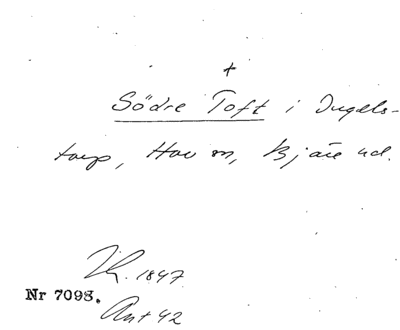 +
Södre Toft i Ingels-
torp, Hov sn, Bjäre hd.
1847
Nr 7098.
Ant 42